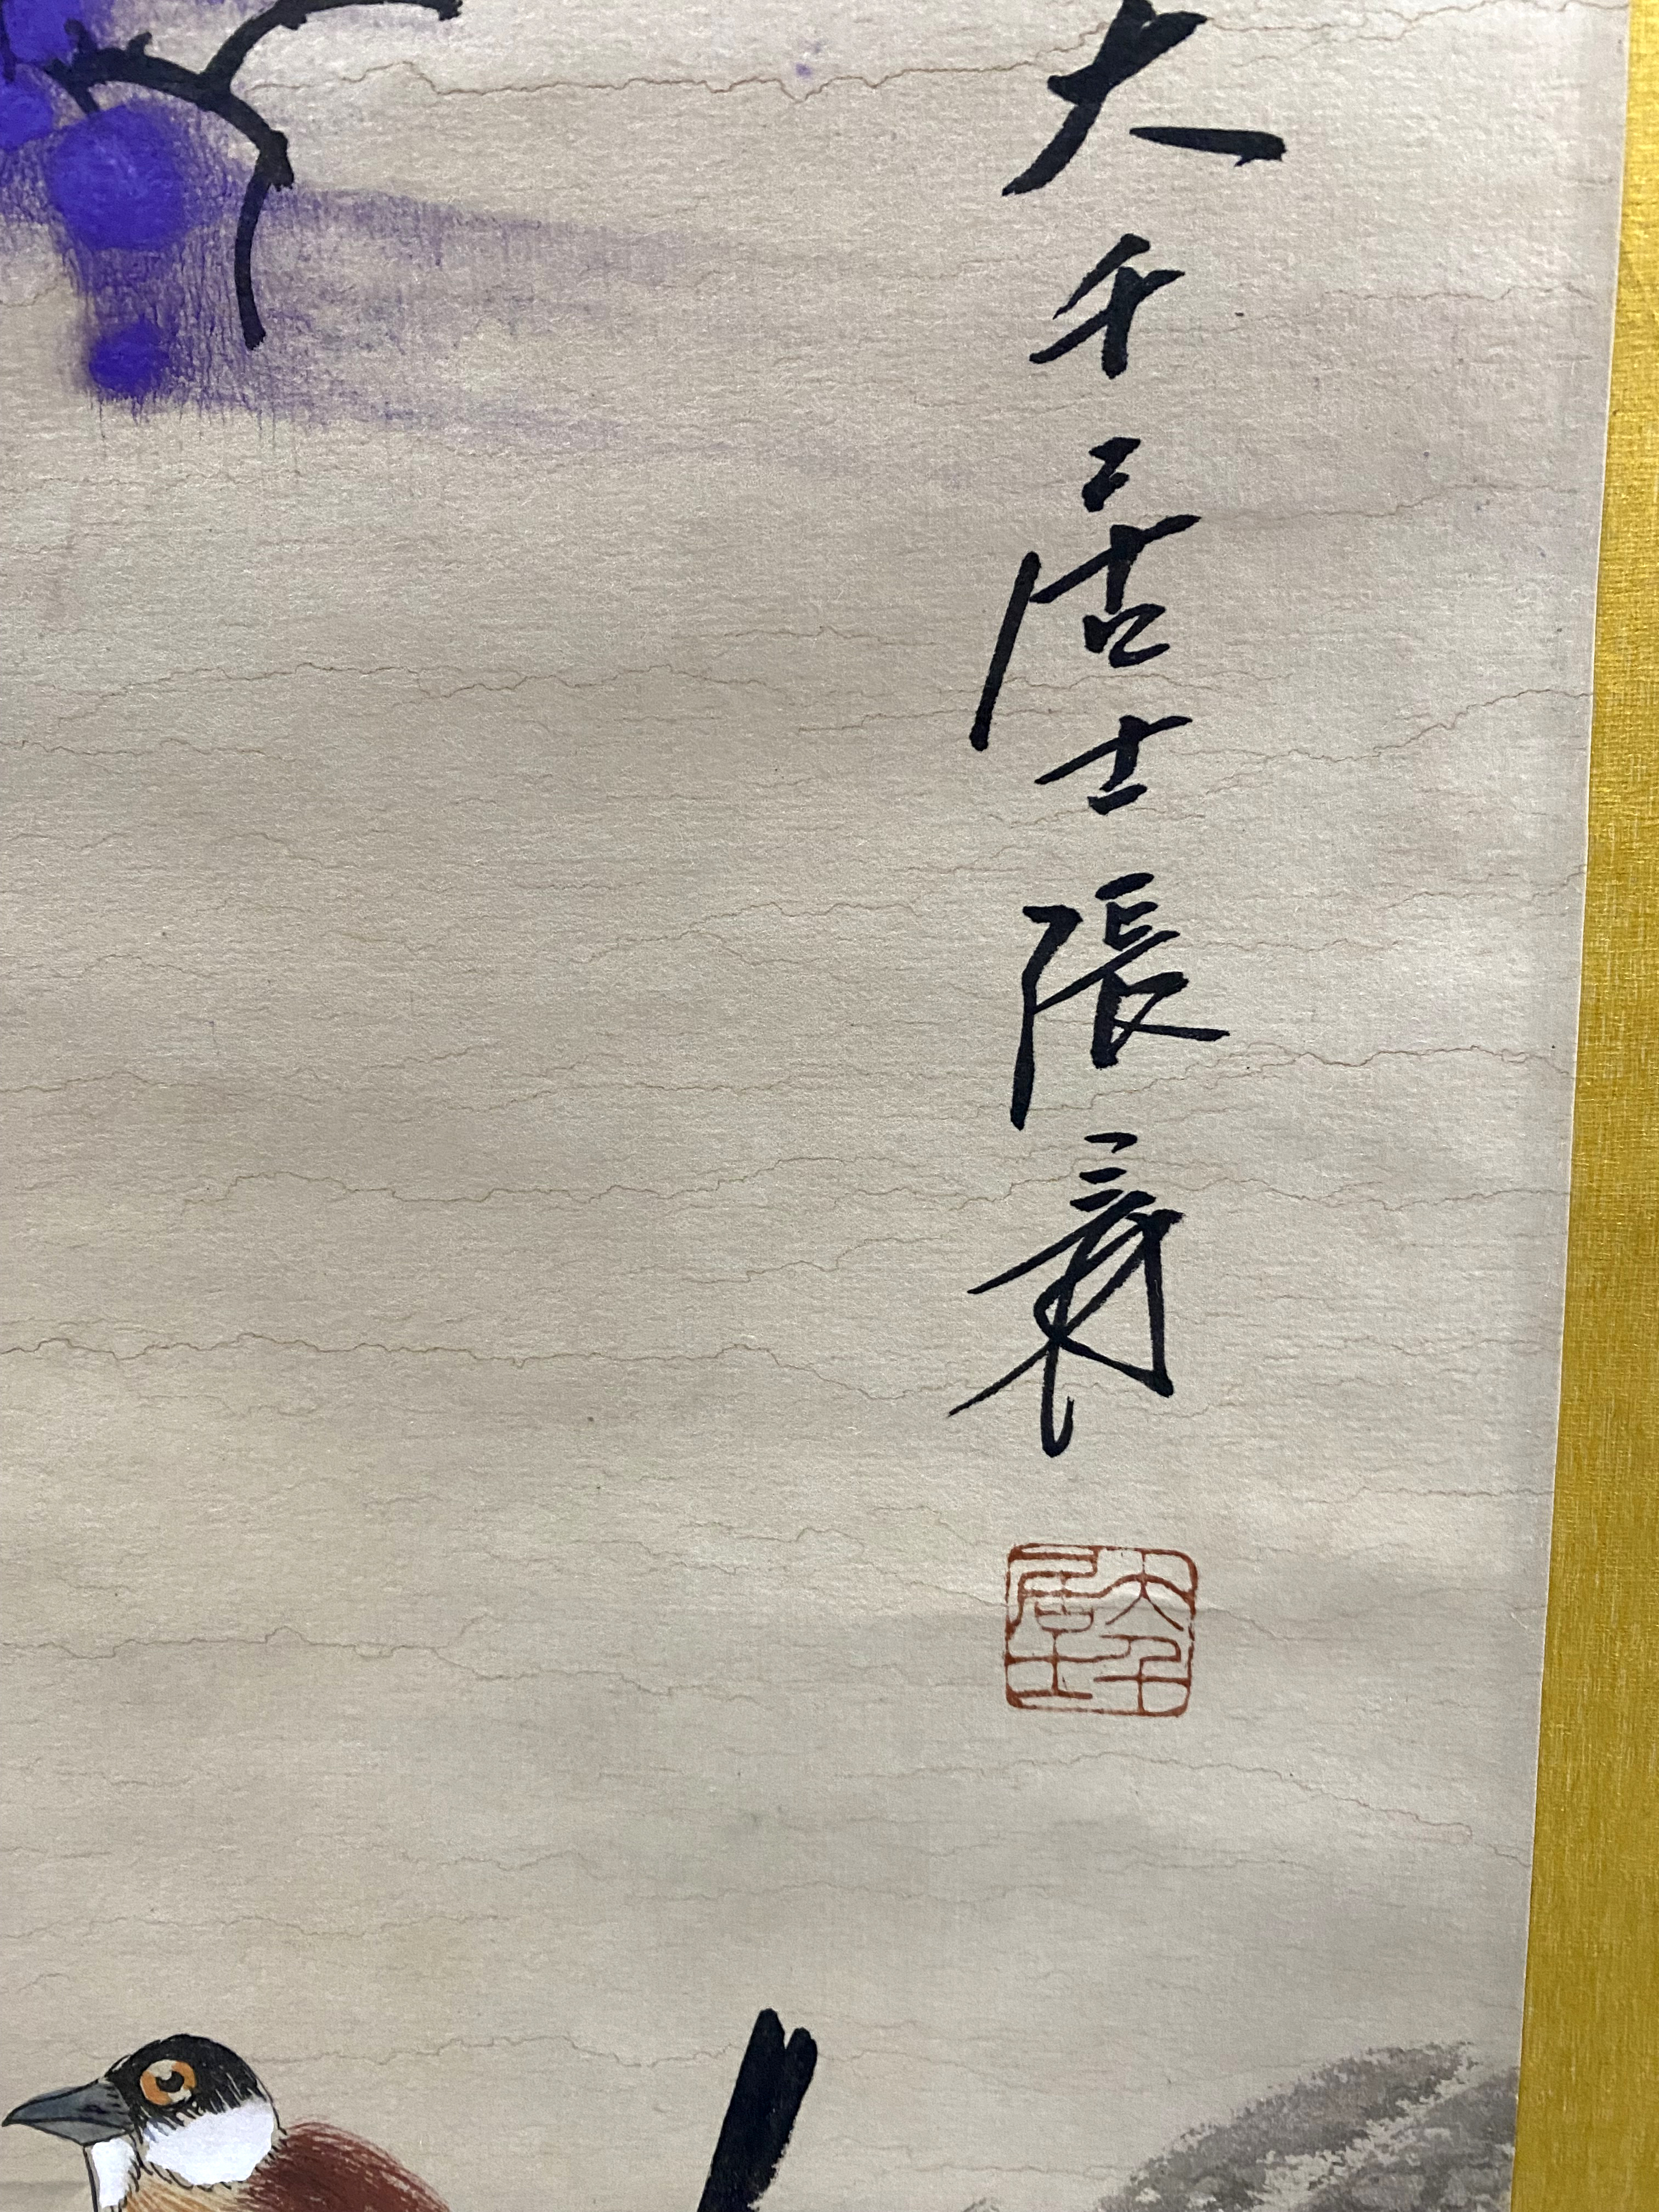 大千居士張爰
大千居士